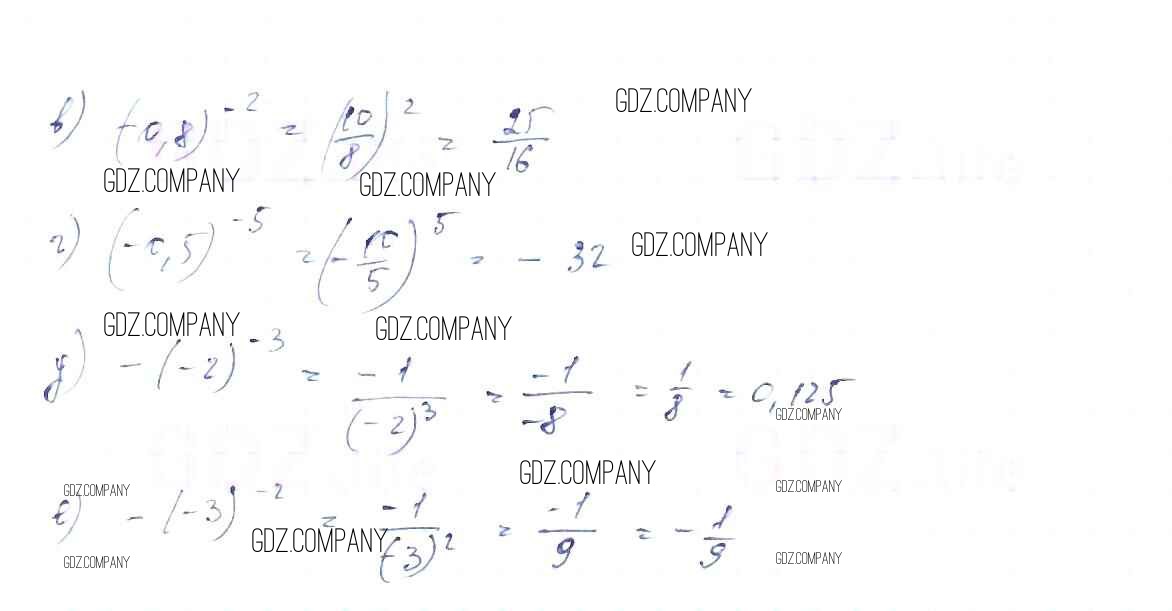 в) (-0,8)^{-2} = (10/8)^2 = 25/16 GDZ.COMPANY
GDZ.COMPANY GDZ.COMPANY
г) (-0,5)^{-5} = (-10/5)^5 = - 32 GDZ.COMPANY
GDZ.COMPANY GDZ.COMPANY
д) -(-2)^{-3} = -1/(-2)^3 = -1/-8 = 1/8 = 0,125
GDZ.COMPANY
GDZ.COMPANY
GDZ.COMPANY GDZ.COMPANY
е) -(-3)^{-2} = -1/(-3)^2 = -1/9 = -1/9
GDZ.COMPANY
GDZ.COMPANY GDZ.COMPANY